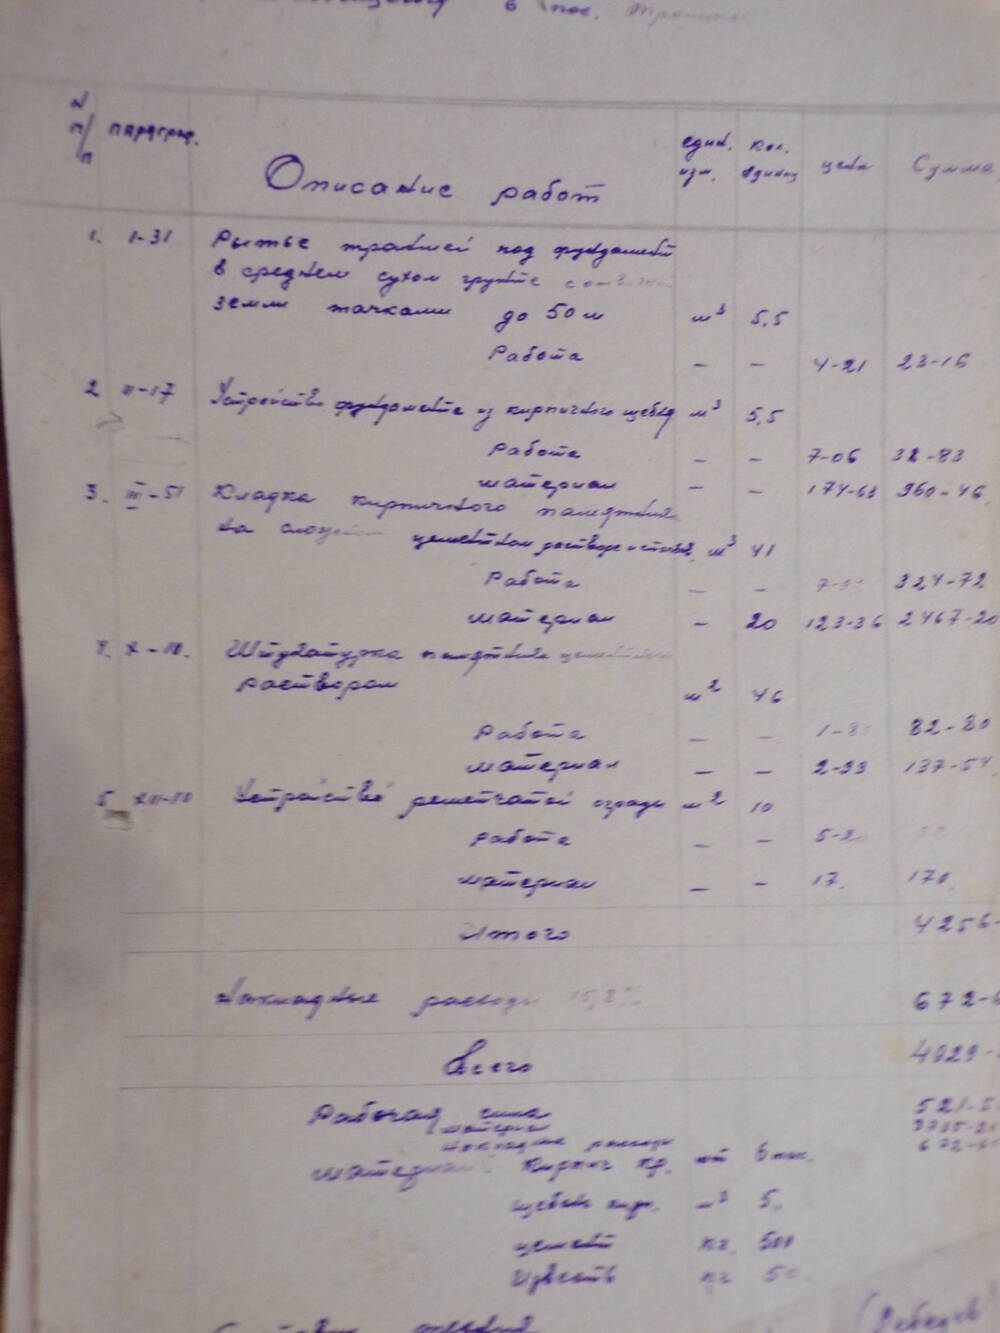 в пос.
№ п/п параграф. Описание работ един. изм. Кол. единиц цена Сумма
1. I-31 Рытье траншей под фундамент
в среднем сухом грунте с
земли тачками до 50 м м³ 5,5
Работа — — 4-21 23-16
2 III-17 Устройство фундамента из кирпичного щебня м³ 5,5
Работа — — 7-06 32-83
материал — — 174-63 960-46
3. III-51 Кладка кирпичного памятника
на цементном растворе м³ 41
Работа — — 324-72
материал — 20 123-36 2467-20
4. X-10. Штукатурка памятника цементным
раствором м² 46
Работа — — 1-80 82-80
материал — — 2-99 137-54
5 XII-10 Устройство решетчатой ограды м² 10
Работа — — 5-2
материал — — 17. 170
Итого 4256-
Накладные расходы 15,8% 672-6
Всего 4929-
Рабочая сила 521-5
материал
накладные расходы 672-6
материал: Кирпич кр. шт 6 тыс.
щебень кирп. м³ 5.
цемент кг. 500
Известь кг 50